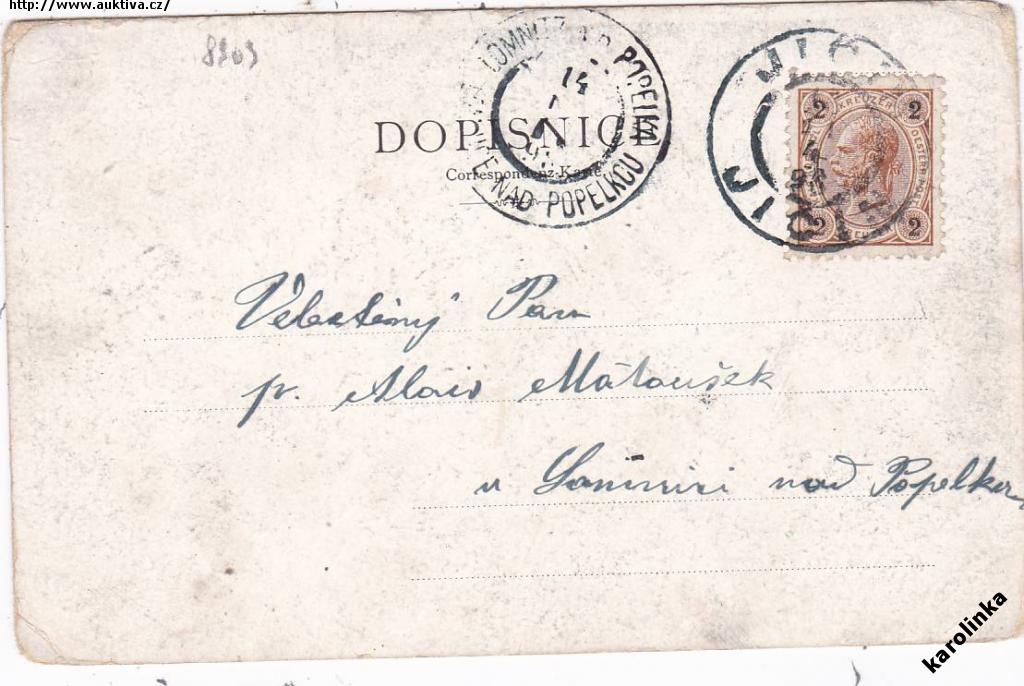 http://www.auktiva.cz/
LOMNITZ A.D. POPELKA
NAD POPELKOU
JIČ
JIČ
2 KREUZER 2
2 2
DOPISNICE
Correspondenz-Karte
Velectěný Pan
p. Alois Matoušek
v Lomnici nad Popelkou
karolinka